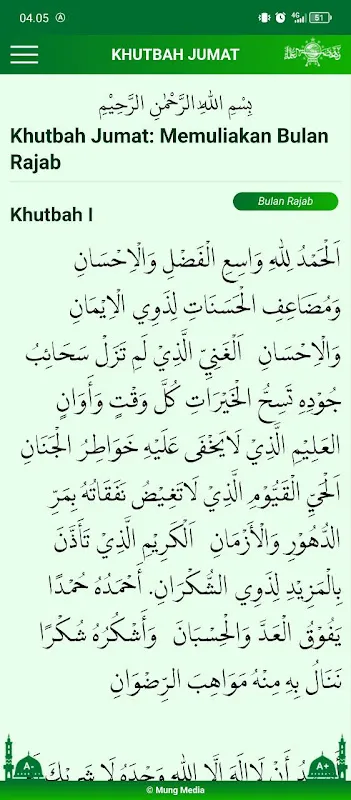 04.05
4G
51
KHUTBAH JUMAT
بِسْمِ اللهِ الرَّحْمٰنِ الرَّحِيْمِ
Khutbah Jumat: Memuliakan Bulan
Rajab
Bulan Rajab
Khutbah I
اَلْحَمْدُ لِلّٰهِ وَاسِعِ الْفَضْلِ وَالْاِحْسَانِ
وَمُضَاعِفِ الْحَسَنَاتِ لِذَوِي الْاِيْمَانِ
وَالْاِحْسَانِ اَلْغَنِيِّ الَّذِيْ لَمْ تَزَلْ سَحَائِبُ
جُوْدِهِ تَسِحُّ الْخَيْرَاتِ كُلَّ وَقْتٍ وَأَوَانٍ
العَلِيْمِ الَّذِيْ لَايَخْفَى عَلَيْهِ خَوَاطِرُ الْجَنَانِ
اَلْحَيِّ الْقَيُّوْمِ الَّذِيْ لَاتَغِيْضُ نَفَقَاتُهُ بِمَرِّ
الدُّهُوْرِ وَالْأَزْمَانِ اَلْكَرِيْمِ الَّذِيْ تَأَذَّنَ
بِالْمَزِيْدِ لِذَوِي الشُّكْرَانِ. أَحْمَدُهُ حُمْدًا
يَفُوْقُ الْعَدَّ وَالْحِسْبَانَ وَأَشْكُرُهُ شُكْرًا
نَنَالُ بِهِ مِنْهُ مَوَاهِبَ الرِّضْوَانِ
أَنْ لَاإِلَهَ إِلَّا اللهُ وَحْدَهُ لَا شَرِيْكَ
A-
A+
© Mung Media